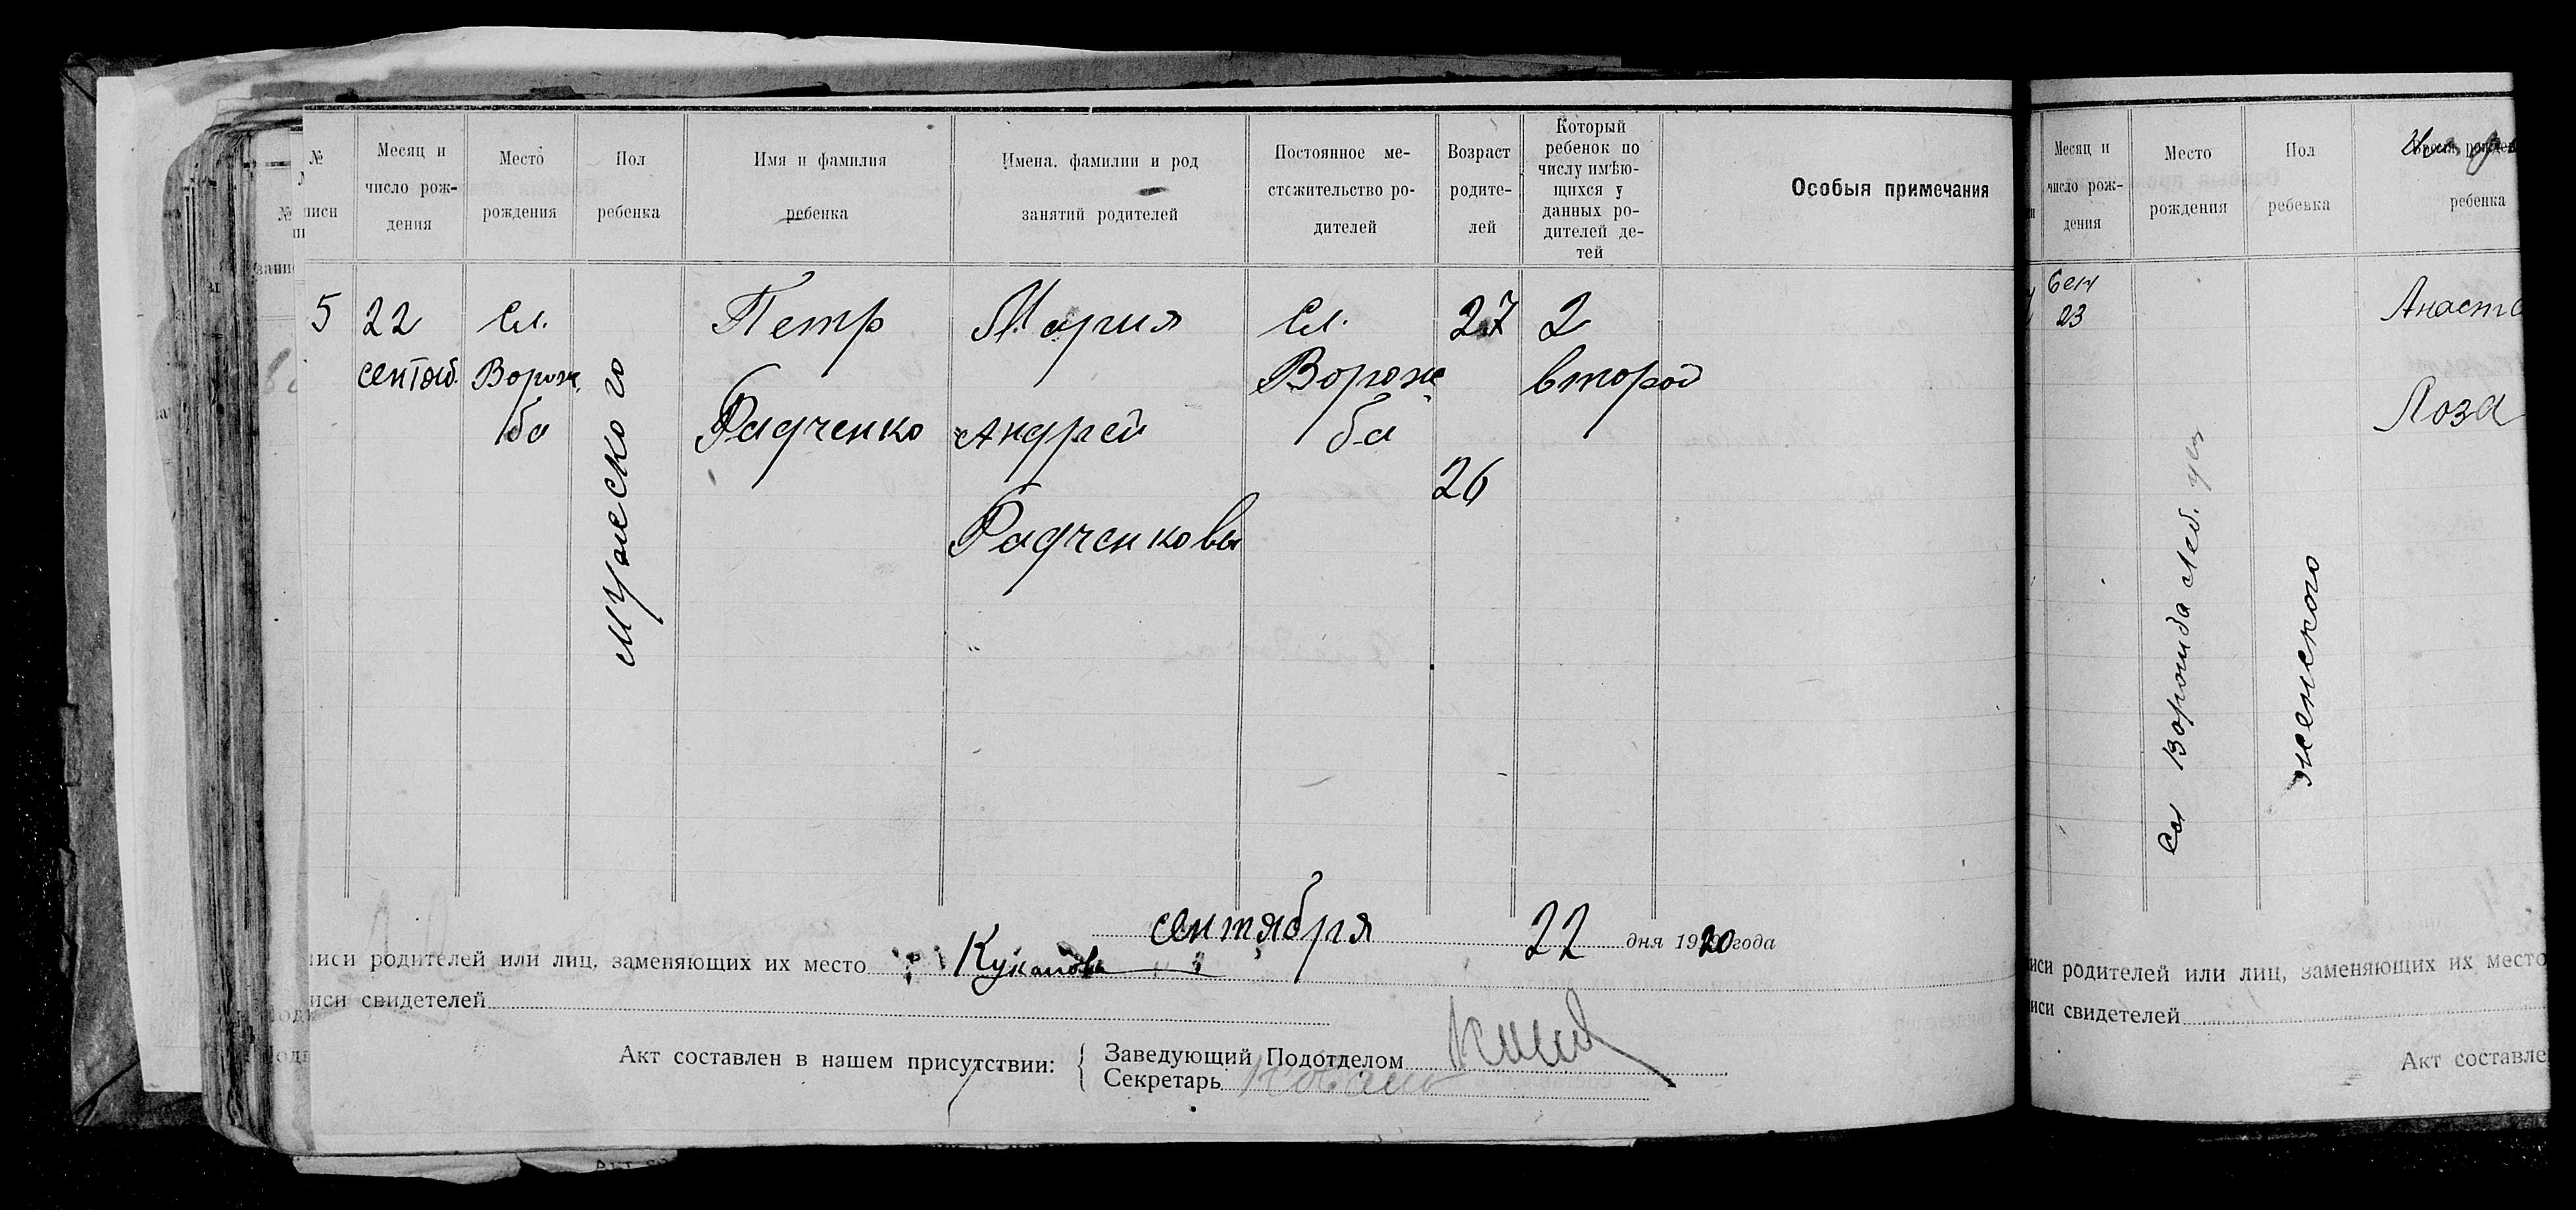 №
писи
Месяц и
число рож-
дения
Место
рождения
Пол
ребенка
Имя и фамилия
ребенка
Имена, фамилии и род
занятий родителей
Постоянное ме-
стожительство ро-
дителей
Возраст
родите-
лей
Который
ребенок по
числу имѣю-
щихся у
данных ро-
дителей де-
тей
Особыя примечания
5
22
сентяб.
Сл.
Ворож
ба
Мужеского
Петр
Радченко
Мария
Андрей
Радченковы
Сл.
Ворож
ба
27
26
2
второй
сентября 22 дня 1920 года
писи родителей или лиц, заменяющих их место
писи свидетелей
Акт составлен в нашем присутствии:
Заведующий Подотделом
Секретарь
Месяц и
число рож-
дения
Место
рождения
Пол
ребенка
ребенка
Сен
23
Сл Ворожба Леб. уез
женского
Анаста
Лоза
писи родителей или лиц, заменяющих их место
писи свидетелей
Акт составле